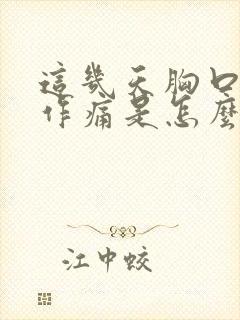 這幾天胸口
作痛是怎麼
江中蛟